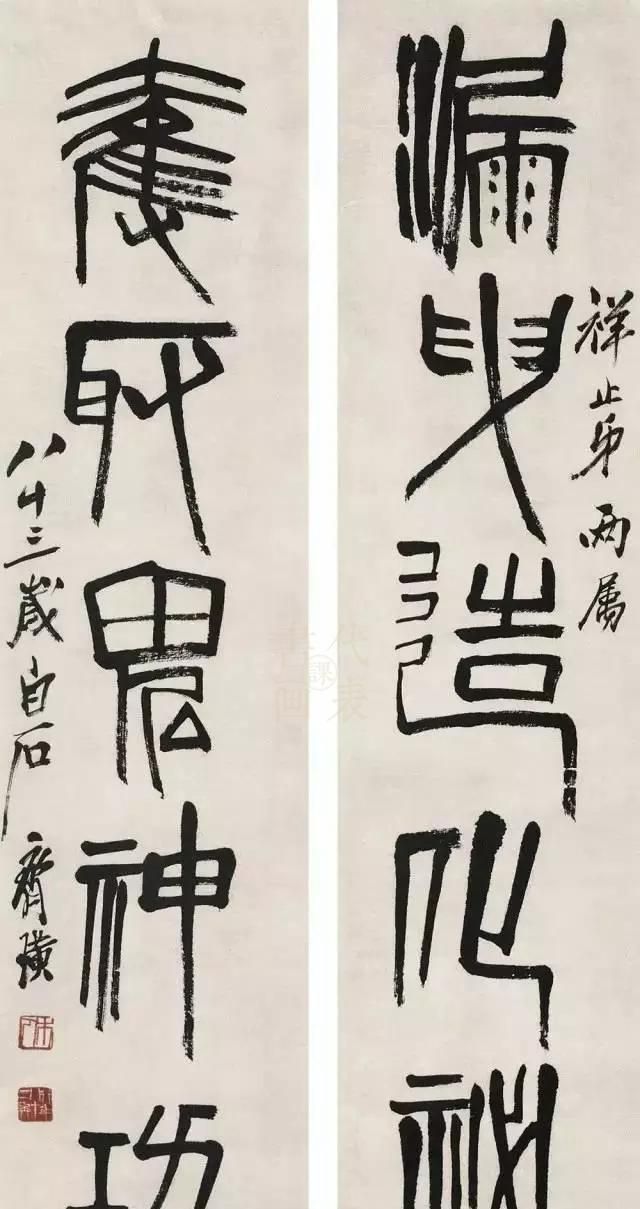 祥止弟兩屬
漏曳造化祕
奪取鬼神功
八十三歲白石齊璜